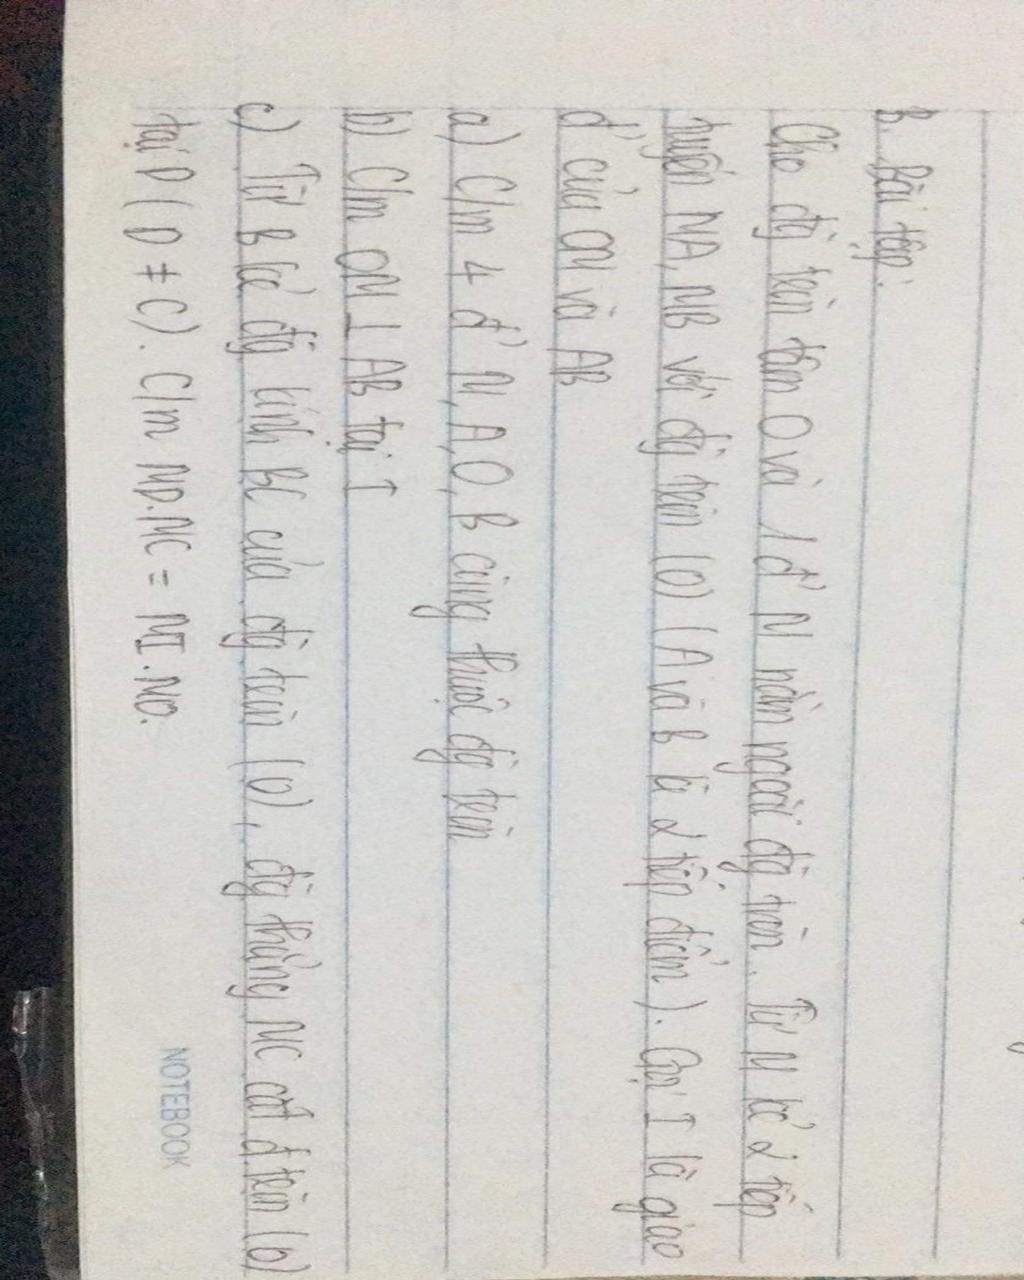 B. Bài tập:
Cho đg tròn tâm O và 1 đ' M nằm ngoài đg tròn. Từ M kẻ 2 tiếp
tuyến MA, MB với đg tròn (O) (A và B là 2 tiếp điểm). Gọi I là giao
đ' của OM và AB
a) C/m 4 đ' M, A, O, B cùng thuộc đg tròn
b) C/m OM ⊥ AB tại I
c) Từ B kẻ đg kính BC của đg tròn (O), đg thẳng MC cắt đ tròn (O)
tại D (D ≠ C). C/m MD.MC = MI.MO.
NOTEBOOK